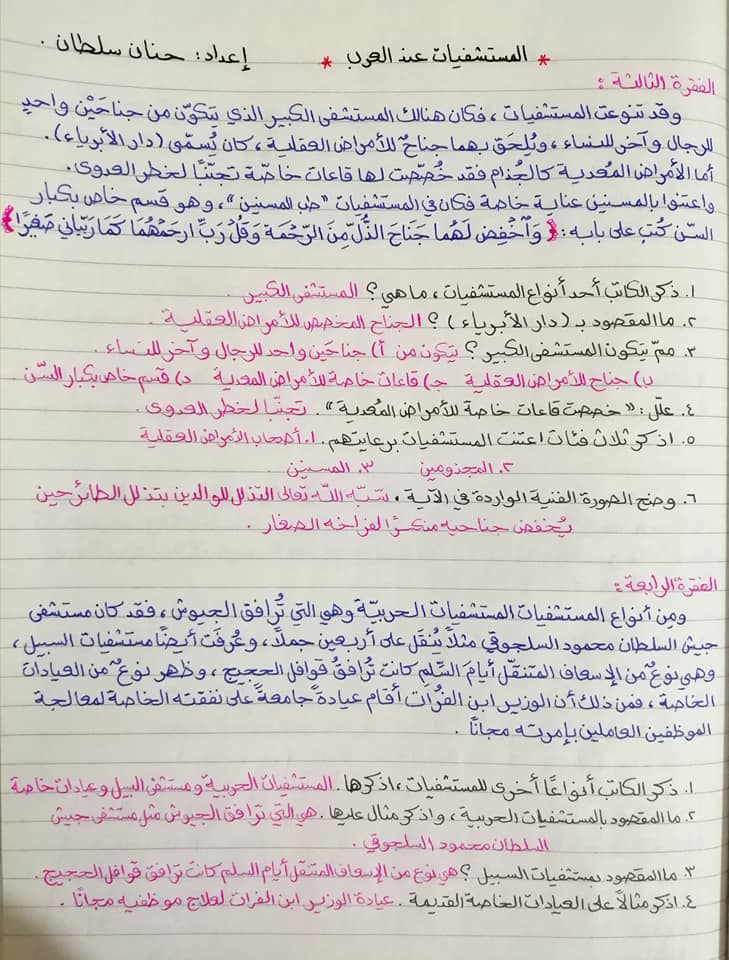 * المستشفيات عند العرب * إعداد: حنان سلطان.
الفقرة الثالثة:
وقد تنوعت المستشفيات، فكان هنالك المستشفى الكبير الذي يتكوّن من جناحَيْن واحدٍ
للرجال وآخر للنساء، ويُلحَق بهما جناحٌ للأمراض العقلية، كان يُسمّى (دار الأبرياء).
أما الأمراض المعدية كالجُذام فقد خُصّصت لها قاعات خاصّة تجنّبًا لخطر العدوى.
واعتنوا بالمسنين عناية خاصة فكان في المستشفيات "طب المسنين"، وهو قسم خاص بكبار
السّن كُتب على بابه: {وَٱخۡفِض لَهُما جَناحَ الذُّلِّ مِنَ الرَّحْمَة وَقُلْ رَبِّ ارحَمْهُمَا كَمَا رَبّيَاني صَغيرًا}
١. ذكر الكاتب أحد أنواع المستشفيات، ما هي؟ المستشفى الكبير.
٢. ما المقصود بـ (دار الأبرياء)؟ الجناح المخصص للأمراض العقلية.
٣. ممّ يتكون المستشفى الكبير؟ يتكون من أ) جناحَين واحد للرجال وآخر للنساء.
ب) جناح للأمراض العقلية جـ) قاعات خاصة للأمراض المعدية د) قسم خاص بكبار السّن
٤. علّل: "خصصت قاعات خاصة للأمراض المُعدية". تجنّبًا لخطر العدوى.
٥. اذكر ثلاث فئات اعتنت المستشفيات برعايتهم. ١. أصحاب الأمراض العقلية
٢. المجذومين ٣. المسنين
٦. وضح الصورة الفنية الواردة في الآية، شبّه الله تعالى التذلل للوالدين بتذلل الطائر حين
يُخفض جناحيه منكسرًا لفراخه الصغار.
الفقرة الرابعة:
ومِن أنواع المستشفيات المستشفيات الحربيّة وهي التي تُرافق الجيوش، فقد كان مستشفى
جيش السلطان محمود السلجوقي مثلًا يُنقل على أربعين جملًا، وعُرفَت أيضًا مستشفيات السبيل،
وهي نوعٌ من الإسعاف المتنقّل أيامَ السِّلم كانت تُرافقُ قوافل الحجيج، وظهر نوعٌ من العيادات
الخاصة، فمن ذلك أن الوزير ابن الفرات أقام عيادةً جامعةً على نفقته الخاصة لمعالجة
الموظفين العاملين بإمرته مجانًا.
١. ذكر الكاتب أنواعًا أخرى للمستشفيات، اذكرها. المستشفيات الحربية ومستشفى البيل وعيادات خاصة
٢. ما المقصود بالمستشفيات الحربية، واذكر مثال عليها. هي التي ترافق الجيوش مثل مستشفى جيش
السلطان محمود السلجوقي.
٣. ما المقصود بمستشفيات السبيل؟ هي نوع من الإسعاف المتنقل أيام السلم كانت ترافق قوافل الحجيج.
٤. اذكر مثالًا على العيادات الخاصة القديمة. عيادة الوزير ابن الفرات لعلاج موظفيه مجانًا.